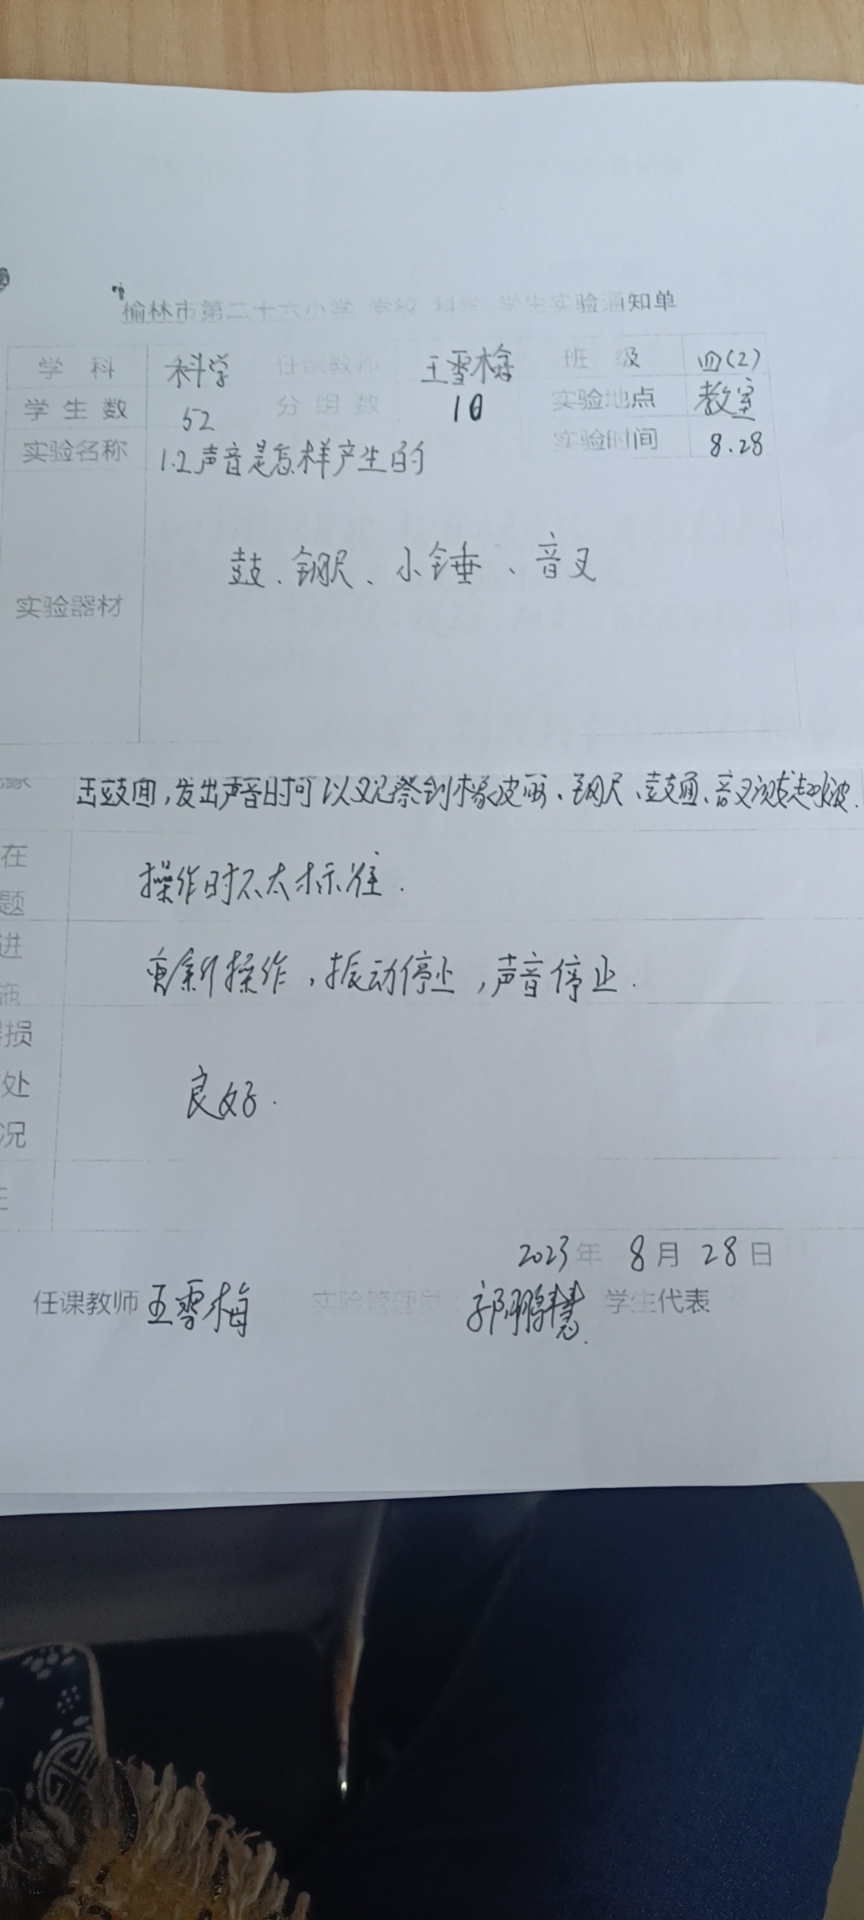 榆林市第二十六小学 学校 科学 学生实验通知单
学 科 科学 任课教师 王雪梅 班 级 四(2)
学 生 数 52 分 组 数 10 实验地点 教室
实验名称 1.2声音是怎样产生的 实验时间 8.28
实验器材 鼓、钢尺、小锤、音叉
击鼓面,发出声音时可以观察到橡皮筋、钢尺、鼓面、音叉
在
题
操作时不太标准.
进
施
重新操作,振动停止,声音停止.
损
处
况
良好.
2023年 8月28日
任课教师 王雪梅 实验管理员 郭鹏慧 学生代表